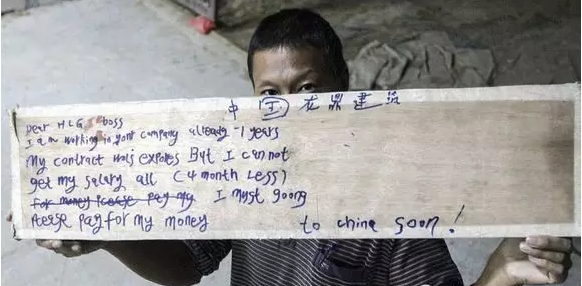 中 王 龙鼎建筑
Dear HLG boss
I am working in yont company already 1 years
My contract wois expores But I can not
get my salary all (4 month Less)
for money Please pay my I myst goong
Please pay for my money to china soon!